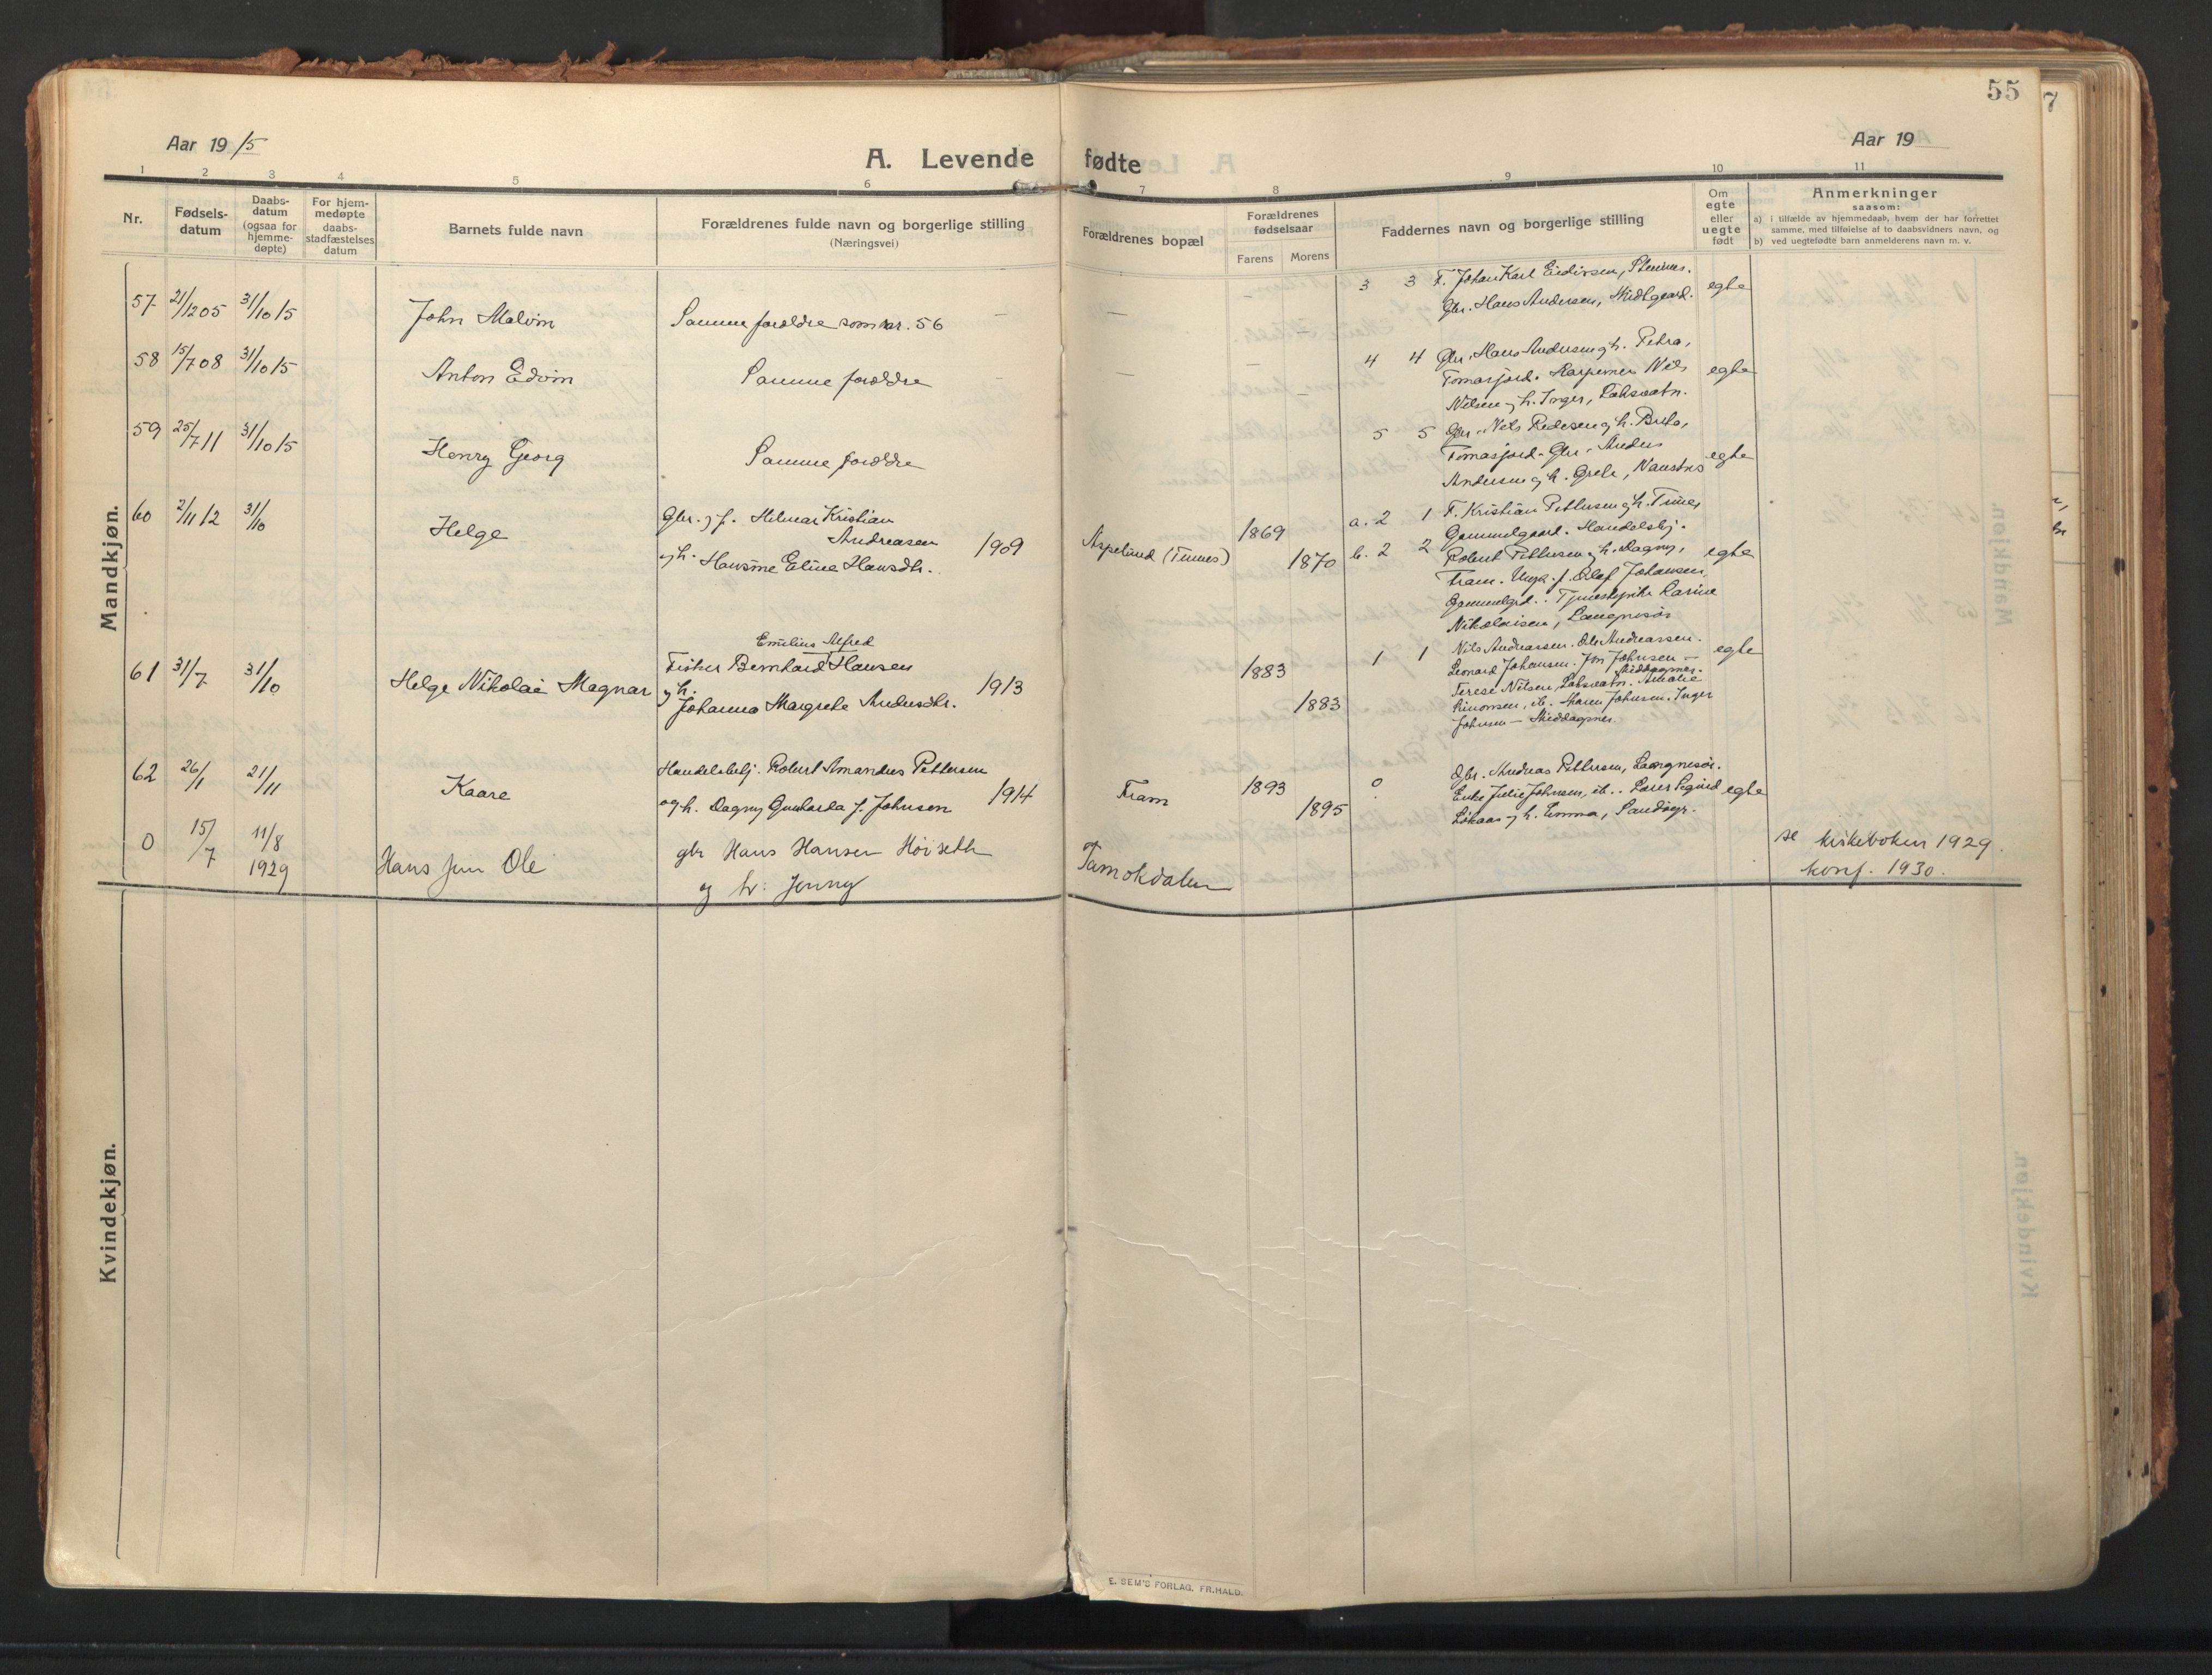 55
7
Aar 19 15
A. Levende
fødte
Aar 19
1 2 3 4 5 6 7 8 9 10 11
Nr.
Fødsels-
datum
Daabs-
datum
(ogsaa for
hjemme-
døpte)
For hjem-
medøpte
daabs-
stadfæstelses
datum
Barnets fulde navn
Forældrenes fulde navn og borgerlige stilling
(Næringsvei)
Forældrenes bopæl
Forældrenes
fødselsaar
Farens Morens
Faddernes navn og borgerlige stilling
Om
egte
eller
uegte
født
Anmerkninger
saasom:
a) i tilfælde av hjemmedaab, hvem der har forrettet
samme, med tilføielse af to daabsvidners navn, og
b) ved uegtefødte barn anmelderens navn m. v.
Mandkjøn.
57 21/12 05 31/10 15 John Malvin Samme forældre som nr. 56 — — — 3 3 F. Johan Karl Eidissen, Steines. egte
Gbr. Hans Andersen, Midtgaard.
58 15/7 08 31/10 15 Anton Edvin Samme forældre — — — 4 4 Gbr. Hans Andersen og h. Petra, egte
Tomasjord. Nils
Nilsen og h. Inger, Laksvatn.
59 25/7 11 31/10 15 Henry Georg Samme forældre 5 5 Gbr. Nils Pedersen og h. Berta, egte
Tomasjord. Gbr. Anders
Andersen og h. Grete,
60 2/11 12 31/10 Helge Gbr. og f. Hilmar Kristian
Andreasen 1909
og h. Hansine Eline Hansdtr.
Aspelund (Tunnes) 1869 1870 a. 2 1 F. Kristian Pettersen og h. Trine,
Gammelgaard. Handelsbj.
b. 2 2 Robert Pettersen og h. Dagny, egte
Fram. Ungk. f. Olaf Johansen,
Gammelgrd. Tjenestepike Karine
Nikolaisen, Langnesør
61 31/7 31/10 Helge Nikolai Magnar
Emilius Alfred
Fisker Bernhard Hansen
og h. 1913
Johanna Margrete Andersdtr.
1883 1883 1 1 Nils Andreassen. Ole Andreassen. egte
Leonard Johansen. Jon Johnsen —
Middagsnes.
Terese Nilsen, Laksvatn. Amalie
Simonsen, ib. Maren Johnsen. Inger
Johnsen — Middagsnes.
62 26/1 21/11 Kaare Handelsbetj. Robert Amandus Pettersen
og h. Dagny Gunharda f. Johnsen 1914
Fram 1893 1895 0 Gbr. Andreas Pettersen, Langnesør.
Enke Julie Johnsen, ib. Lærer Sigurd egte
Løkaas og h. Emma, Sandøgr.
0 15/7 11/8 1929 Hans Jen Ole gbr Hans Hansen Høiseth
og h: Jenny
Tamokdalen
se kirkeboken 1929.
konf. 1930.
Kvindekjøn.
E. SEM'S FORLAG, FR.HALD.